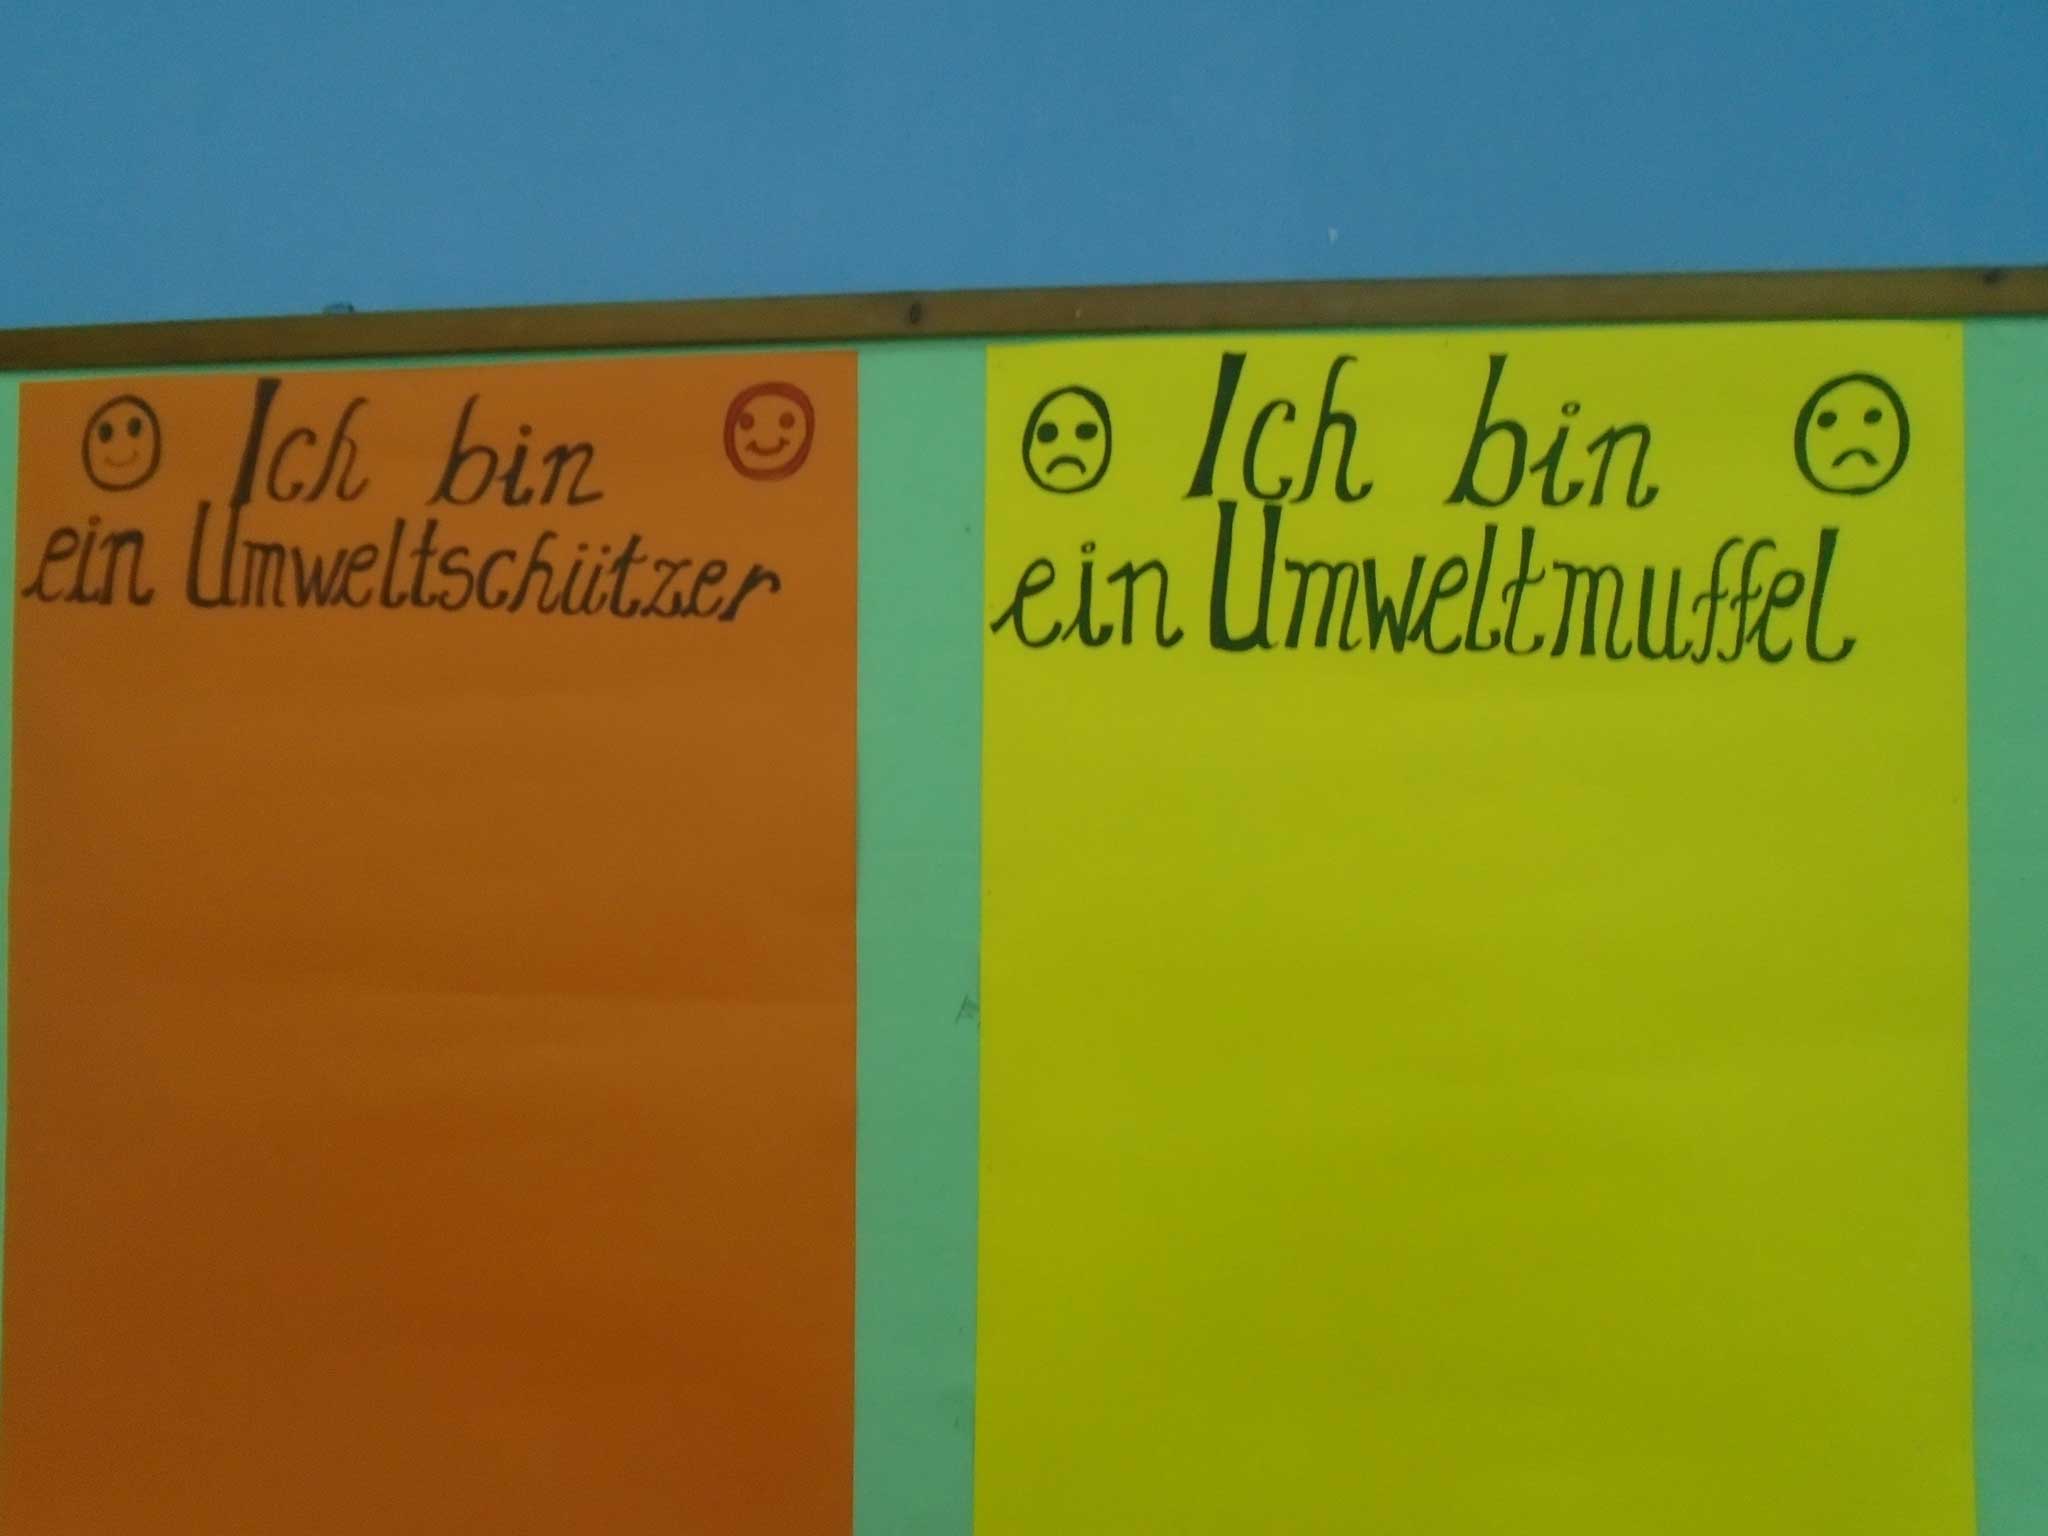 Ich bin
ein Umweltschützer
Ich bin
ein Umweltmuffel